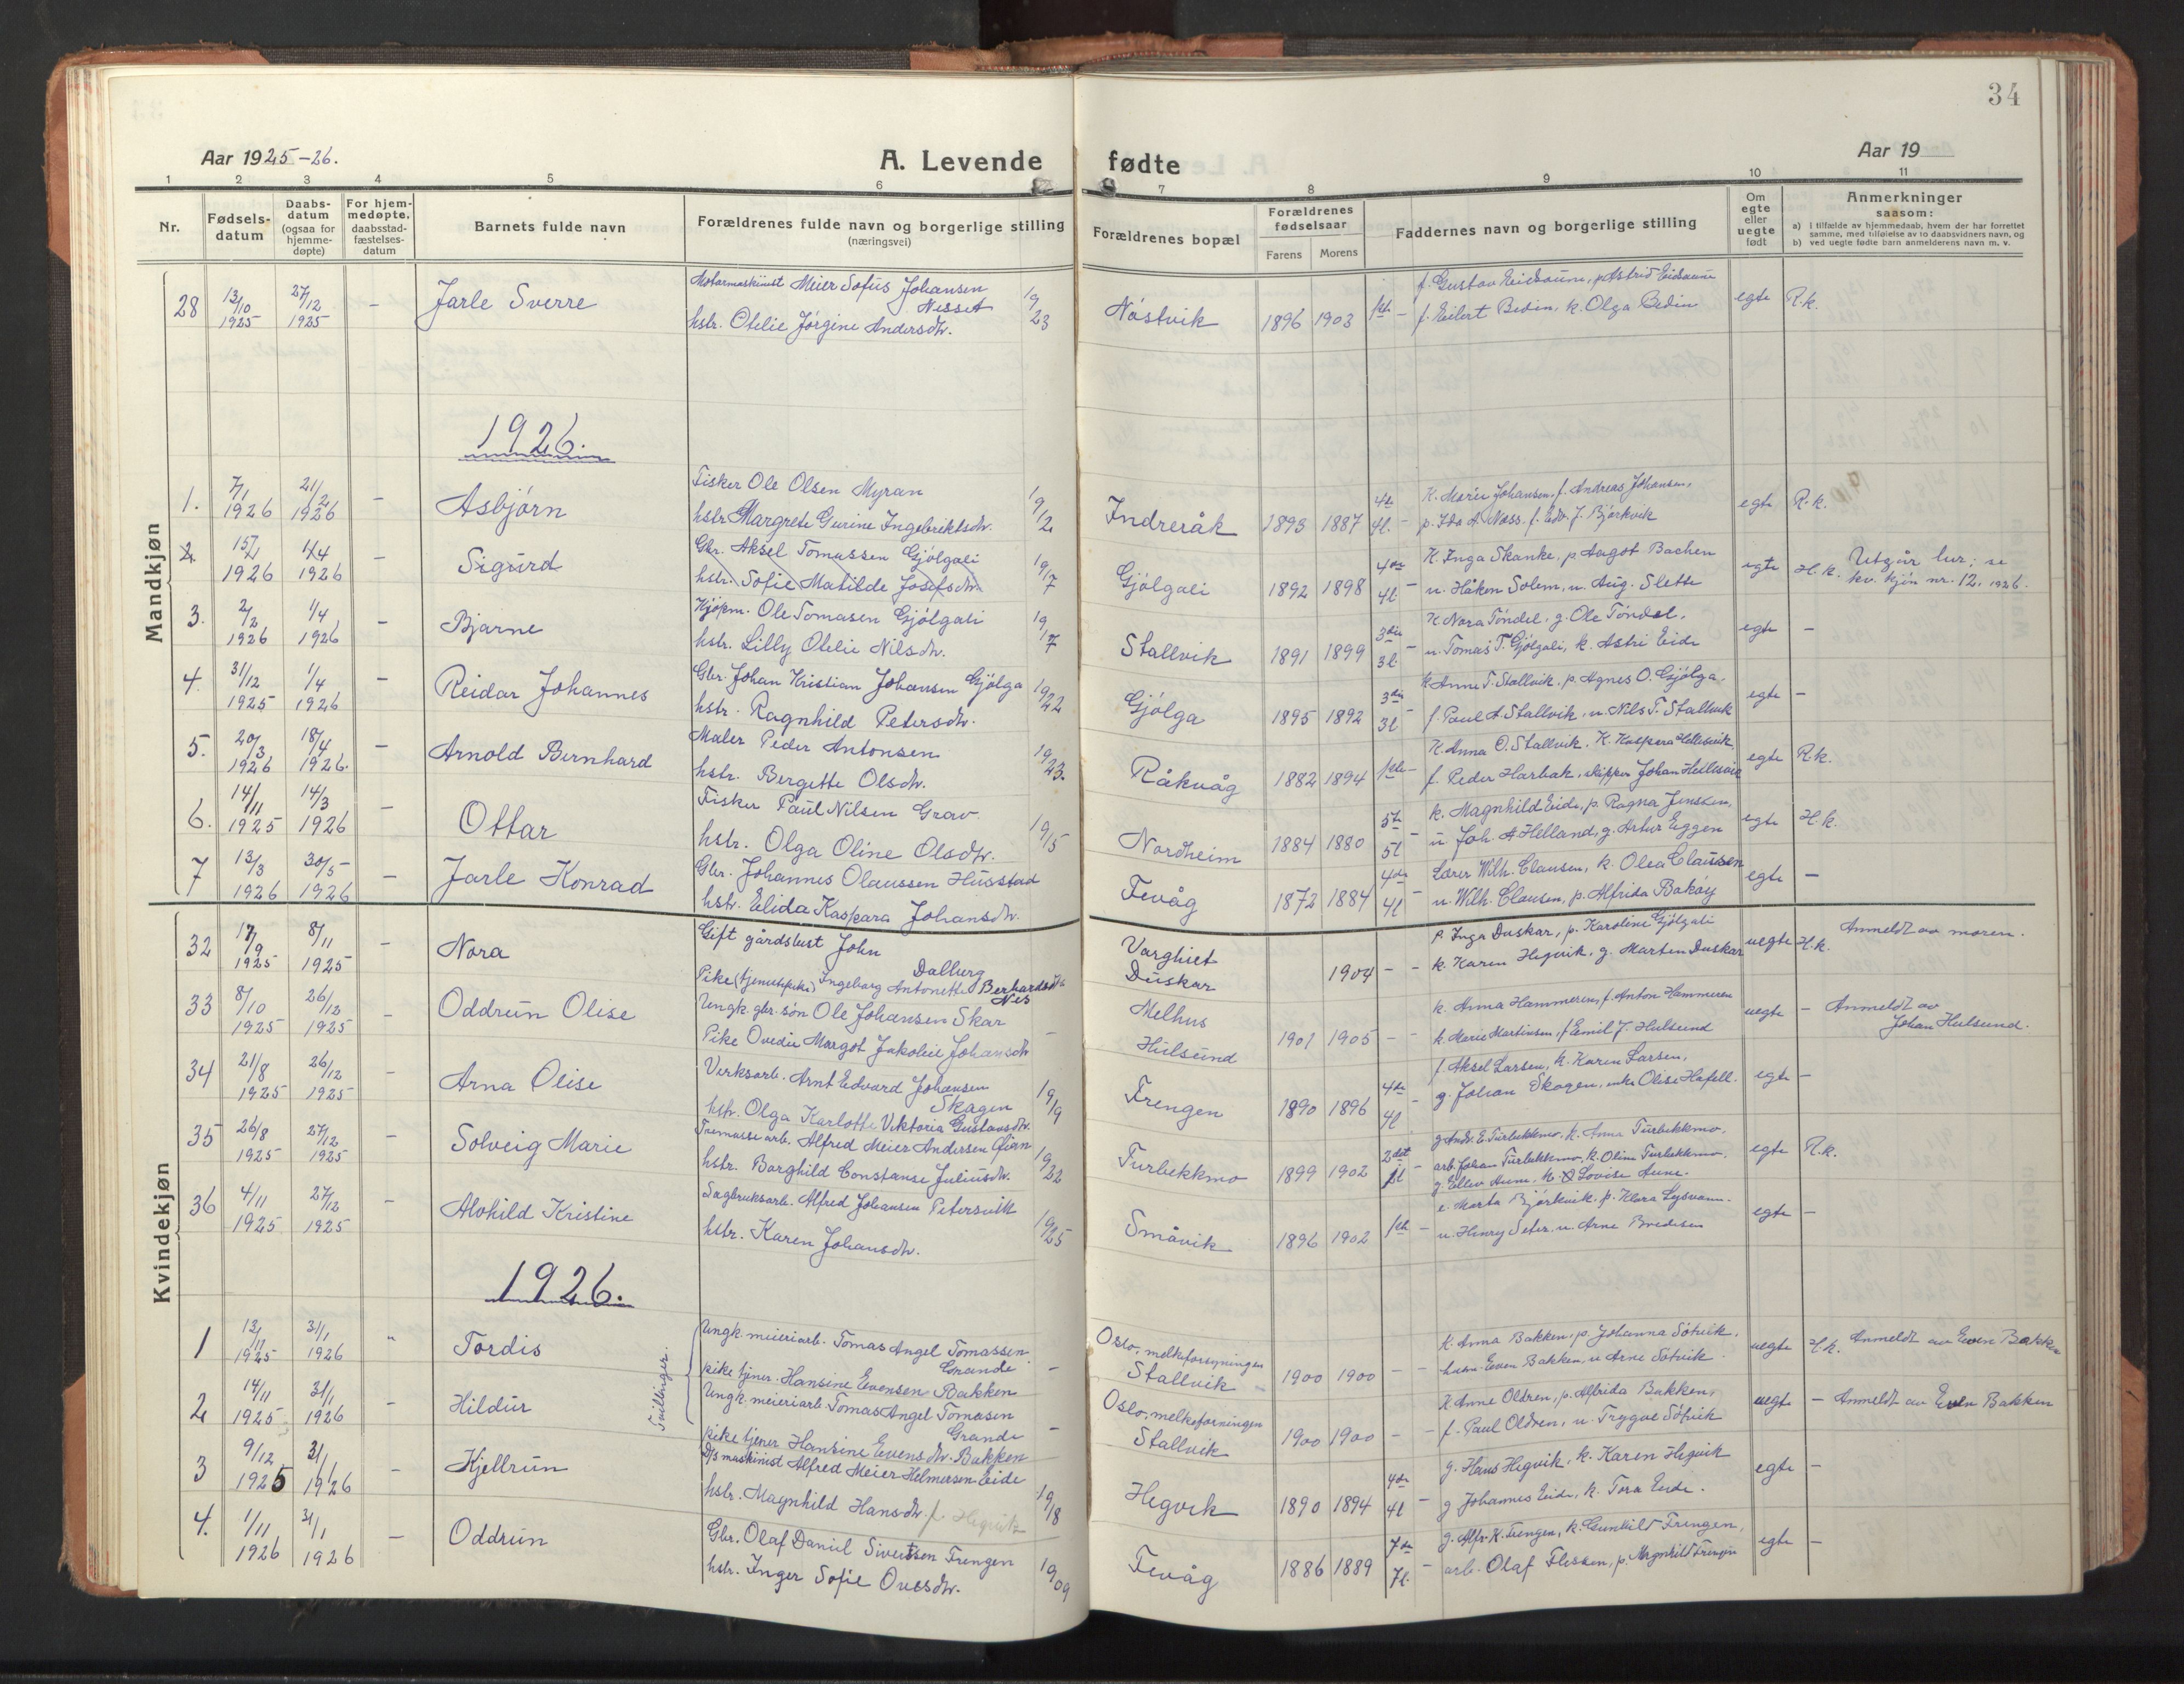 34
Aar 1925-26.
A. Levende fødte
Aar 19
1 2 3 4 5 6 7 8 9 10 11
Nr.
Fødsels-
datum
Daabs-
datum
(ogsaa for
hjemme-
døpte)
For hjem-
medøpte,
daabsstad-
fæstelses-
datum
Barnets fulde navn
Forældrenes fulde navn og borgerlige stilling
(næringsvei)
Forældrenes bopæl
Forældrenes
fødselsaar
Farens Morens
Faddernes navn og borgerlige stilling
Om
egte
eller
uegte
født
Anmerkninger
saasom:
a) i tilfælde av hjemmedaab, hvem der har forrettet
samme, med tilføielse av to daabsvidners navn, og
b) ved uegte fødte barn anmelderens navn m. v.
Mandkjøn
28 13/10 1925 27/12 1925 - Jarle Sverre
Motormaskinist Meier Sofus Johansen
Nesset
hstr. Otelie Jørgine Andersdtr. 19/23
Nøstvik 1896 1903 1ste -
f. Gustav Eidsaune, p. Astrid Eidsaune
f. Eilert Bedin, k. Olga Bedin
egte R.k.
1926.
1. 7/1 1926 21/2 1926 - Asbjørn
Fisker Ole Olsen Myran
hstr. Margrete Gurine Ingebriktsdtr. 19/12
Indreråk 1893 1887 4de 4l. -
K. Marie Johansen, f. Andreas Johansen,
p. Ida A. Næss. f. Edv. J. Bjørkvik
egte R.k.
2. 15/1 1926 1/4 1926 - Sigurd
Gbr. Aksel Tomassen Gjølgali
hstr. Sofie Matilde Josefsdtr. 19/17
Gjølgali 1892 1898 4de 4l -
K. Inga Skanke, p. Aagot Bachen
u. Håken Solem, u. Aug. Slette
egte H.k. Utgår her; se
kv. kjøn nr. 12. 1926.
3. 2/2 1926 1/4 1926 - Bjarne
Kjøpm. Ole Tomasen Gjølgali
hstr. Lilly Otelie Nilsdtr. 19/17
Stallvik 1891 1899 3die 3l. -
K. Nora Tøndel, g. Ole Tøndel,
u. Tomas T. Gjølgali, k. Astri Eide
egte -
4. 31/12 1925 1/4 1926 - Reidar Johannes
Gbr. Johan Kristian Johansen Gjølga
hstr. Ragnhild Petersdtr. 19/22
Gjølga 1895 1892 3die 3l -
k. Anne T. Stallvik, p. Agnes O. Gjølga,
f. Paul A. Stallvik, u. Nils T. Stallvik
egte -
5. 20/3 1926 18/4 1926. - Arnold Bernhard
Maler Peder Antonsen
hstr. Bergette Olsdtr. 19/23.
Råkvåg 1882 1894 1ste -
K. Anna O. Stallvik. K. Kaspara Hellesvik
f. Peder Harbak, skipper Johan Hellesvik
egte R.k.
6. 14/11 1925 14/3 1926 - Ottar
Fisker Paul Nilsen Grav
hstr. Olga Oline Olsdtr. 19/15
Nordheim 1884 1880 5te 5l -
k. Magnhild Eide, p. Ragna Jenssen,
u. Joh. A. Helland, g. Artur Eggen
egte H.k.
7 13/3 1926 30/5 1926 - Jarle Konrad
Gbr. Johannes Olaussen Husstad
hstr. Elida Kaspara Johansdtr.
Fevåg 1872 1884 4de 4l -
Lærer Wilh. Clausen, k. Olea Claussen
u. Wilh. Clausen, p. Alfrida Bakøy
egte -
Kvindekjøn
32 17/9 1925 8/11 1925 - Nora
Gift gårdsbest John
Dalberg
Pike (tjenestepike) Ingeborg Antonette Berhardsdtr
Nes
Varghiet
Duskar 1904 - -
p. Inga Duskar, p. Karoline Gjølgali
k. Karen Hegvik, g. Marten Duskar
uegte H.k. Anmeldt av moren.
33 8/10 1925 26/12 1925 - Oddrun Olise
Ungk. gbr. søn Ole Johansen Skar
Pike Ovedie Margot Jakobie Johansdtr -
Melhus
Hulsund 1901 1905 - -
k. Anna Hammeren, f. Anton Hammeren
k. Marie Martinsen, f. Emil J. Hulsund
uegte - Anmeldt av
Johan Hulsund.
34 21/8 1925 26/12 1925 - Arna Olise
Verksarb. Arnt Edvard Johansen
Skagen
hstr. Olga Karlotte Viktoria Gustavsdtr. 19/19
Frengen 1890 1896 4de 4l -
f. Aksel Larsen, k. Karen Larsen,
g. Johan Skagen, enke Olise Hafell.
egte -
35 26/8 1925 27/12 1925 - Solveig Marie
Tremassearb. Alfred Meier Andersen Øian
hstr. Borghild Constanse Juliusdtr. 19/22
Turbekkmo 1899 1902 2det 1l -
g. Andr. E. Turbekkmo, k. Anna Turbekkmo,
arb. Johan Turbekkmo, k. Oline Turbekkmo,
g. Ellev Aune, k. Lovise Aune.
egte R.k.
36 4/11 1925 27/12 1925 - Alvhild Kristine
Sagbruksarb. Alfred Johansen Petersvik
hstr. Karen Johansdtr. 19/25
Småvik 1896 1902 1ste -
e. Marta Bjørkvik, p. Klara Lysvann.
u. Henry Seter, u. Arne Bredesen
egte -
1926.
1 13/11 1925 31/1 1926 " Tordis
Tvillinger.
Ungk. meieriarb. Tomas Angel Tomassen
Grande
pike tjener. Hansine Evensen Bakken -
Oslo, melkeforsyningen
Stallvik - 1900 1900 - -
K. Anna Bakken, p. Johanna Søtvik,
husm. Even Bakken, u. Arne Søtvik.
uegte H.k. Anmeldt av Even Bakken
2 14/11 1925 31/1 1926 - Hildur
Ungk. meieriarb. Tomas Angel Tomasen
Grande
pike tjener Hansine Evensdtr. Bakken -
Oslo, melkeforningen
Stallvik 1900 1900 - -
K. Anne Oldren, p. Alfrida Bakken,
f. Paul Oldren, u. Trygve Søtvik
uegte - Anmeldt av Even Bakken
3 9/12 1925 31/1 1926 - Kjellrun
D/s maskinist Alfred Meier Helmersen Eide
hstr. Magnhild Hansdtr. f. Hegvik 19/18
Hegvik 1890 1894 4de 4l -
g. Hans Hegvik, k. Karen Hegvik
g. Johannes Eide, k. Tora Eide.
egte -
4. 1/11 1926 31/1 1926 - Oddrun
Gbr. Olaf Daniel Sivertsen Frengen
hstr. Inger Sofie Ovesdtr. 19/09
Fevåg 1886 1889 7de 7l. -
g. Alfr. K. Frengen, k. Gunhild Frengen,
arb. Olaf Flessen, p. Magnhild Frengen
egte -